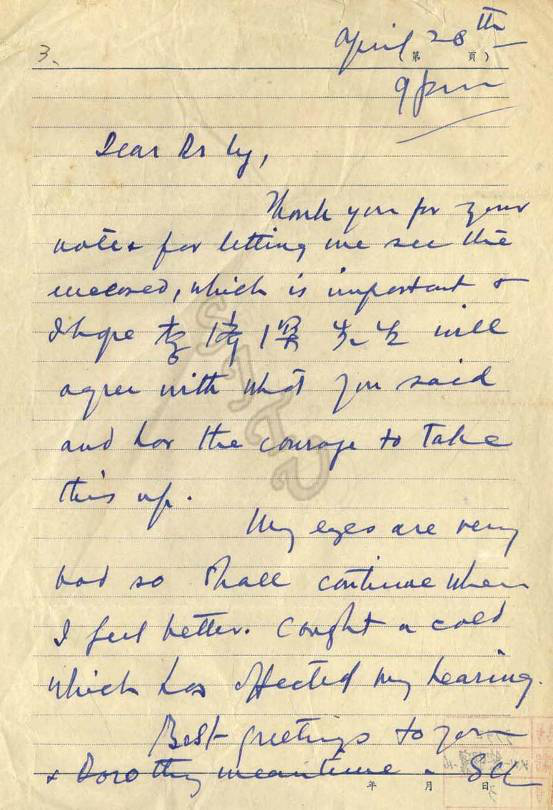 3.
April 28th
第 頁)
9 pm
Dear Dr Ly,
Thank you for your
note & for letting me see the
enclosed, which is important &
I hope 李 偉 先生 will
agree with what you said
and has the courage to take
this up.
My eyes are very
bad so shall continue when
I feel better. Caught a cold
which has affected my hearing.
Best greetings to you
& Dorothy meantime.
年 月 日